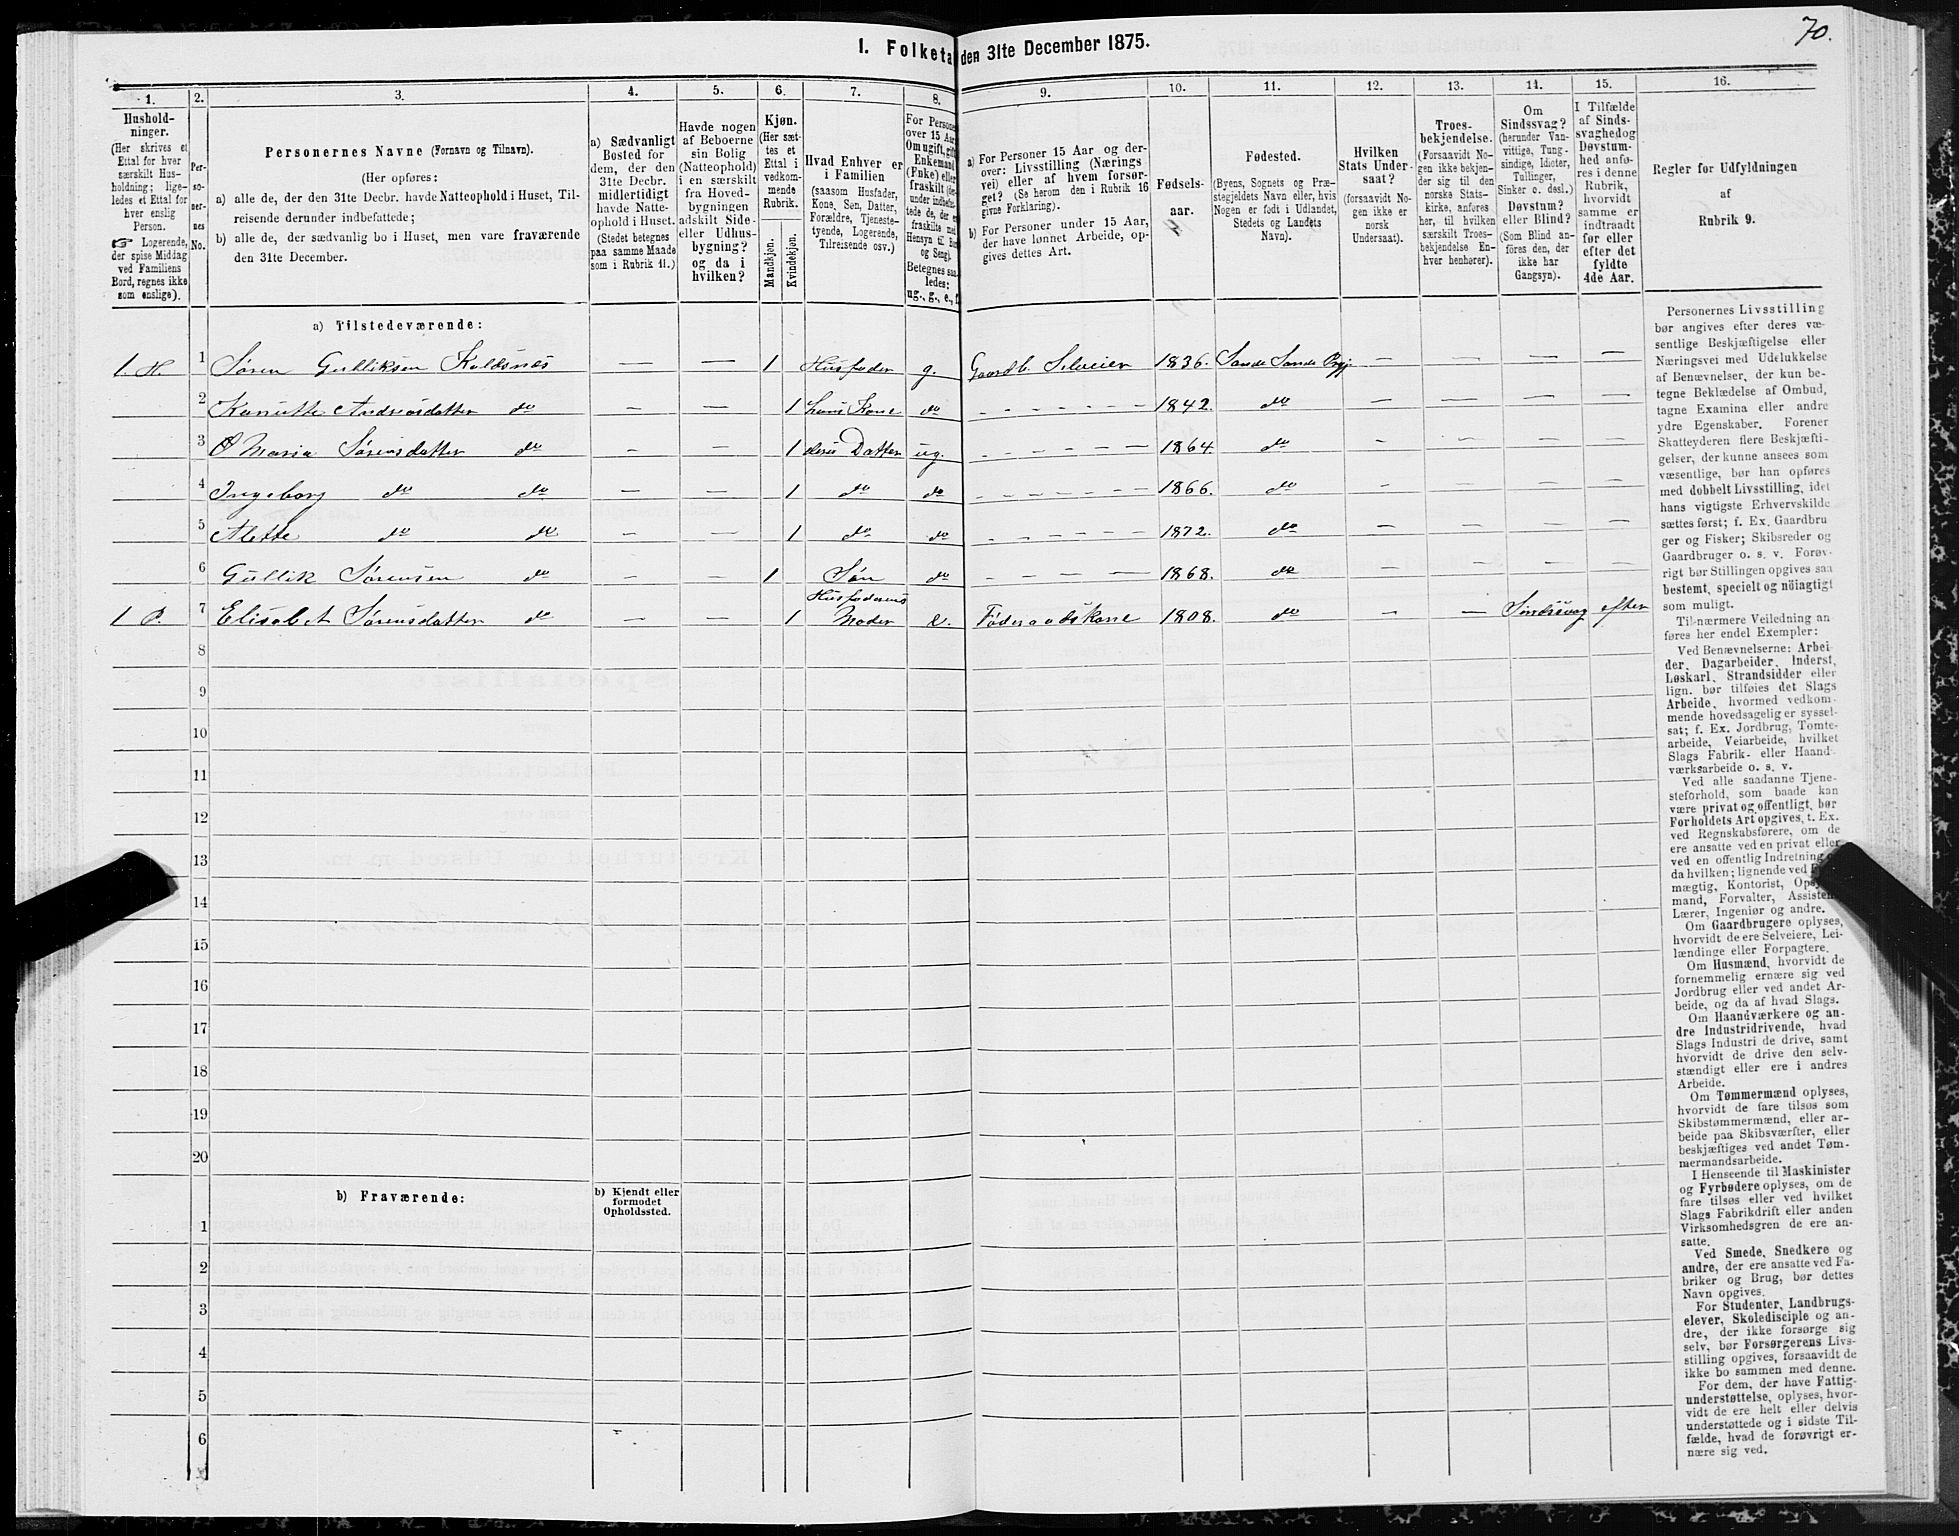 70.
1. Folketa den 31te December 1875.
1.
Hushold-
ninger.
(Her skrives et
Ettal for hver
særskilt Hus-
holdning; lige-
ledes et Ettal for
hver enslig
Person.
☞ Logerende,
der spise Middag
ved Familiens
Bord, regnes ikke
som enslige).
2.
Per-
so-
ner-
nes
No.
3.
Personernes Navne (Fornavn og Tilnavn).
(Her opføres:
a) alle de, der den 31te Decbr. havde Natteophold i Huset, Til-
reisende derunder indbefattede;
b) alle de, der sædvanlig bo i Huset, men vare fraværende
den 31te December.
4.
a) Sædvanligt
Bosted for
dem, der den
31te Decbr.
midlertidigt
havde Natte-
ophold i Huset.
(Stedet betegnes
paa samme Maade
som i Rubrik 11.)
5.
Havde nogen
af Beboerne
sin Bolig
(Natteophold)
i en særskilt
fra Hoved-
bygningen
adskilt Side-
eller Udhus-
bygning?
og da i
hvilken?
6.
Kjøn.
(Her sæt-
tes et
Ettal i
vedkom-
mende
Rubrik.
Mandkjøn.
Kvindekjøn.
7.
Hvad Enhver er
i Familien
(saasom Husfader,
Kone, Søn, Datter,
Forældre, Tjeneste-
tyende, Logerende,
Tilreisende osv.)
8.
For Persone
over 15 Aar
Om ugift, gift
Enkemand
(Enke) eller
fraskilt (der-
under indbefat-
tede de, der e
fraskilte med
Hensyn til Bor
og Seng).
Betegnes saa-
ledes:
ug., g., e., f.
9.
a) For Personer 15 Aar og der-
over: Livsstilling (Nærings
vei) eller af hvem forsør-
get? (Se herom den i Rubrik 16
givne Forklaring).
b) For Personer under 15 Aar,
der have lønnet Arbeide, op-
gives dettes Art.
10.
Fødsels-
aar.
11.
Fødested.
(Byens, Sognets og Præ-
stegjeldets Navn eller, hvis
Nogen er født i Udlandet,
Stedets og Landets
Navn).
12.
Hvilken
Stats Under-
saat?
(forsaavidt No-
gen ikke er
norsk
Undersaat).
13.
Troes-
bekjendelse.
(Forsaavidt No-
gen ikke bekjen-
der sig til den
norske Stats-
kirke, anføres
her, til hvilken
særskilt Troes-
bekjendelse En-
hver henhører).
14.
Om
Sindssvag?
(herunder Van-
vittige, Tung-
sindige, Idioter,
Tullinger,
Sinker o. desl.)
Døvstum?
eller Blind?
(Som Blind an-
føres den, der
ikke har
Gangsyn).
15.
I Tilfælde
af Sinds-
svaghedog
Døvstum-
hed anfø-
res i denne
Rubrik,
hvorvidt
samme er
indtraadt
før eller
efter det
fyldte
4de Aar.
16.
Regler for Udfyldningen
af
Rubrik 9.
a) Tilstedeværende:
1. H. 1 Søren Gulliksen Koldsnæs — — 1 Husfader g. Gaardb. Selveier 1836. Sande Sande Prgj. — — — —
2 Karnitte Andreasdatter do — — 1 hans Kone do - - - - - - 1842. do — — — —
3 O Maria Sørensdatter do — — 1 deres Datter ug. - - - - - - 1864. do — — — —
4 Ingeborg do do — — 1 do do - - - - - - 1866. do — — — —
5 Alette do do — — 1 do do - - - - - - 1872. do — — — —
6 Gullik Sørensen do — — 1 Søn do - - - - - - 1868. do — — — —
Husfaderens
1 P. 7 Elisabet Sørensdatter do — — 1 Moder e. Føderaadskone 1808. do — — Sindssvag efter
8
9
10
11
12
13
14
15
16
17
18
19
20
b) Fraværende:
b) Kjendt eller
formodet
Opholdssted.
1
2
3
4
5
6
Personernes Livsstilling
bør angives efter deres væ-
sentlige Beskjæftigelse eller
Næringsvei med Udelukkelse
af Benævnelser, der kun be-
tegne Beklædelse af Ombud,
tagne Examina eller andre
ydre Egenskaber. Forener
Skatteyderen flere Beskjæfti-
gelser, der kunne ansees som
væsentlige, bør han opføres
med dobbelt Livsstilling, idet
hans vigtigste Erhvervskilde
sættes først; f. Ex. Gaardbru
ger og Fisker; Skibsreder og
Gaardbruger o. s. v. Forøv-
rigt bør Stillingen opgives saa
bestemt, specielt og nöiagtigt
som muligt.
Til nærmere Veiledning an
føres her endel Exempler:
Ved Benævnelserne: Arbei-
der, Dagarbeider, Inderst,
Løskarl, Strandsidder eller
lign. bør tilføies det Slags
Arbeide, hvormed vedkom-
mende hovedsagelig er syssel-
sat; f. Ex. Jordbrug, Tomte-
arbeide, Veiarbeide, hvilket
Slags Fabrik- eller Haand-
værksarbeide o. s. v.
Ved alle saadanne Tjene-
steforhold, som baade kan
være privat og offentligt, bør
Forholdets Art opgives, t. Ex.
ved Regnskabsførere, om de
ere ansatte ved en privat eller
ved en offentlig Indretning
da hvilken; lignende ved
mægtig, Kontorist,
mand, Forvalter,
Lærer, Ingeniør og andre.
Om Gaardbrugere oplyses,
hvorvidt de ere Selveiere, Lei-
lændinge eller Forpagtere.
Om Husmænd, hvorvidt de
fornemmelig ernære sig ved
Jordbrug eller ved andet Ar-
beide, og da af hvad Slags.
Om Haandværkere og an-
dre Industridrivende, hvad
Slags Industri de drive, samt
hvorvidt de drive den selv-
stændigt eller ere i andres
Arbeide.
Om Tømmermænd oplyses,
hvorvidt de fare tilsøs som
Skibstømmermænd, eller ar-
beide paa Skibsværfter, eller
beskjæftiges ved andet Tøm-
mermandsarbeide.
I Henseende til Maskinister
og Fyrbødere oplyses, om de
fare tilsøs eller ved hvilket
Slags Fabrikdrift eller anden
Virksomhedsgren de ere an-
satte.
Ved Smede, Snedkere og
andre, der ere ansatte ved Fa-
briker og Brug, bør dettes
Navn opgives.
For Studenter, Landbrugs-
elever, Skoledisciple og an-
dre, der ikke forsørge sig
selv, bør Forsørgerens Livs-
stilling opgives, forsaavidt de
ikke bo sammen med denne.
For dem, der have Fattig-
understøttelse, oplyses, hvor-
vidt de ere helt eller delvis
understøttede og i sidste Til-
fælde, hvad de forøvrigt er-
nære sig ved.